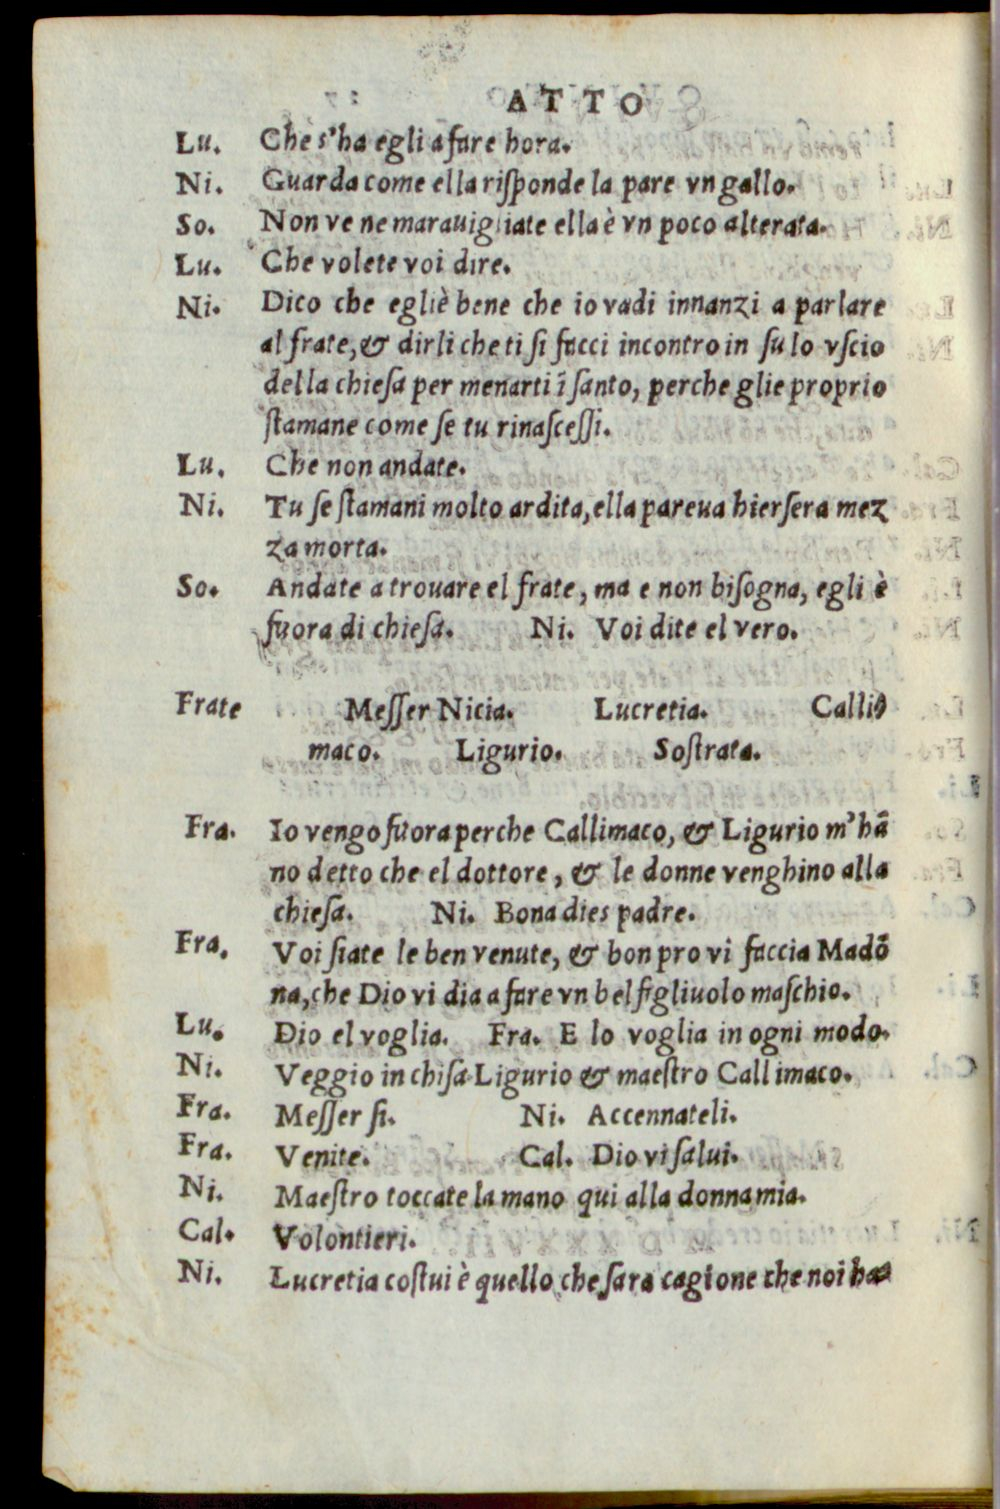 ATTO
Lu. Che s'ha egli a fare hora.
Ni. Guarda come ella riſponde la pare vn gallo.
So. Non ve ne marauigliate ella è vn poco alterata.
Lu. Che volete voi dire.
Ni. Dico che egliè bene che io vadi innanzi a parlare
al frate, & dirli che ti ſi facci incontro in ſu lo vſcio
della chieſa per menarti ĩ ſanto, perche glie proprio
ſtamane come ſe tu rinaſceſſi.
Lu. Che non andate.
Ni. Tu ſe ſtamani molto ardita, ella pareua hierſera mez
za morta.
So. Andate a trouare el frate, ma e non biſogna, egli è
fuora di chieſa. Ni. Voi dite el vero.
Frate Meſſer Nicia. Lucretia. Calli
maco. Ligurio. Soſtrata.
Fra. Io vengo fuora perche Callimaco, & Ligurio m'hã
no detto che el dottore, & le donne venghino alla
chieſa. Ni. Bona dies padre.
Fra. Voi ſiate le ben venute, & bon pro vi faccia Madõ
na, che Dio vi dia a fare vn bel figliuolo maſchio.
Lu. Dio el voglia. Fra. E lo voglia in ogni modo.
Ni. Veggio in chiſa Ligurio & maeſtro Callimaco.
Fra. Meſſer ſi. Ni. Accennateli.
Fra. Venite. Cal. Dio vi ſalui.
Ni. Maeſtro toccate la mano qui alla donna mia.
Cal. Volontieri.
Ni. Lucretia coſtui è quello che ſara cagione che noi ha